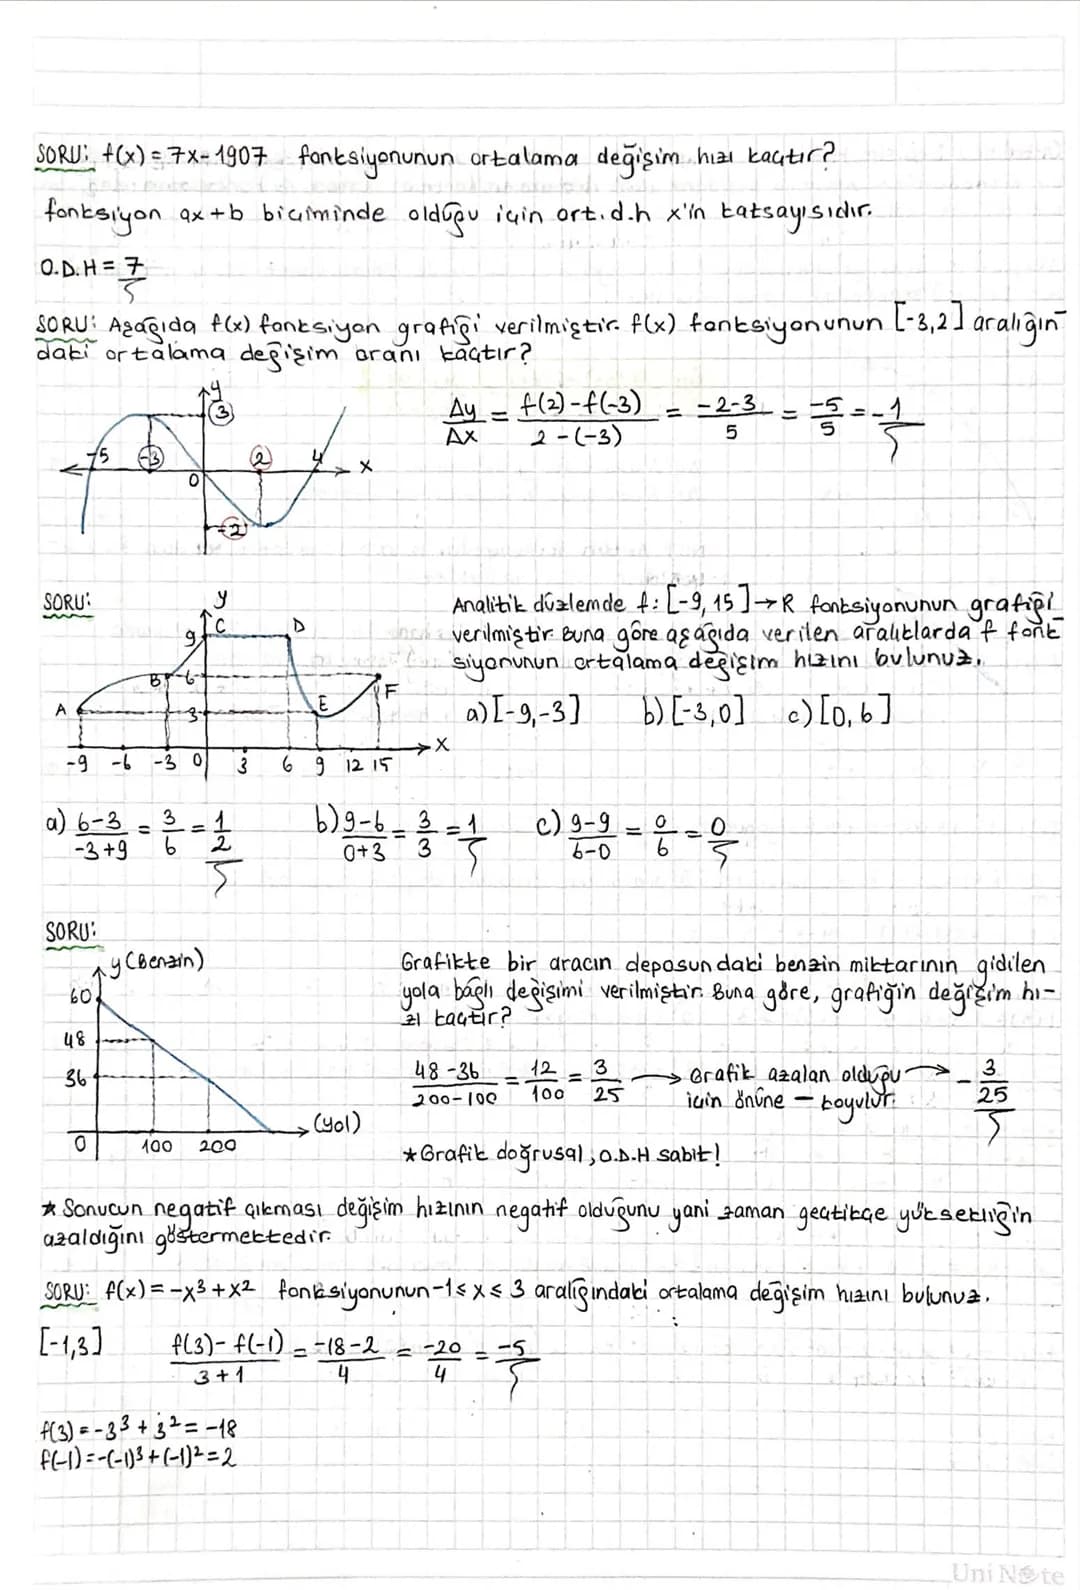 SORU: f(x) = 7x-1907 fonksiyonunun ortalama değişim hızı kaçtır?
fonksiyon ax+b biçiminde olduğu için ort.d.h x'in katsayısıdır.
O.D.H = 7
SORU: Aşağıda f(x) fonksiyon grafiği verilmiştir. f(x) fonksiyonunun [-3,2] aralığın
daki ortalama değişim oranı kaçtır?
y
3
-5 -3 0 2 4 x
-2
Δy/Δx = f(2)-f(-3)/2-(-3) = -2-3/5 = -5/5 = -1
SORU:
Analitik düzlemde f: [-9, 15] → R fonksiyonunun grafiği
verilmiştir. Buna göre aşağıda verilen aralıklarda f fonk
siyonunun ortalama değişim hızını bulunuz.
a) [-9,-3] b) [-3,0] c) [0,6]
y
9 C D
B 6 F
A 3 E
x
-9 -6 -3 0 3 6 9 12 15
a) 6-3/-3+9 = 3/6 = 1/2 b) 9-6/0+3 = 3/3 = 1 c) 9-9/6-0 = 0/6 = 0
SORU:
y (Benzin)
60
48
36
0 100 200 (yol)
Grafikte bir aracın deposundaki benzin miktarının gidilen
yola bağlı değişimi verilmiştir. Buna göre, grafiğin değişim hı-
zı kaçtır?
48-36/200-100 = 12/100 = 3/25 → Grafik azalan olduğu → -3/25
için önüne - koyulur.
*Grafik doğrusal, O.D.H sabit!
* Sonucun negatif çıkması değişim hızının negatif olduğunu yani zaman geçtikçe yüksekliğin
azaldığını göstermektedir.
SORU: f(x) = -x³ + x² fonksiyonunun -1 ≤ x ≤ 3 aralığındaki ortalama değişim hızını bulunuz.
[-1,3] f(3)-f(-1)/3+1 = -18-2/4 = -20/4 = -5
f(3) = -3³ + 3² = -18
f(-1) = -(-1)³ + (-1)² = 2
UniNote